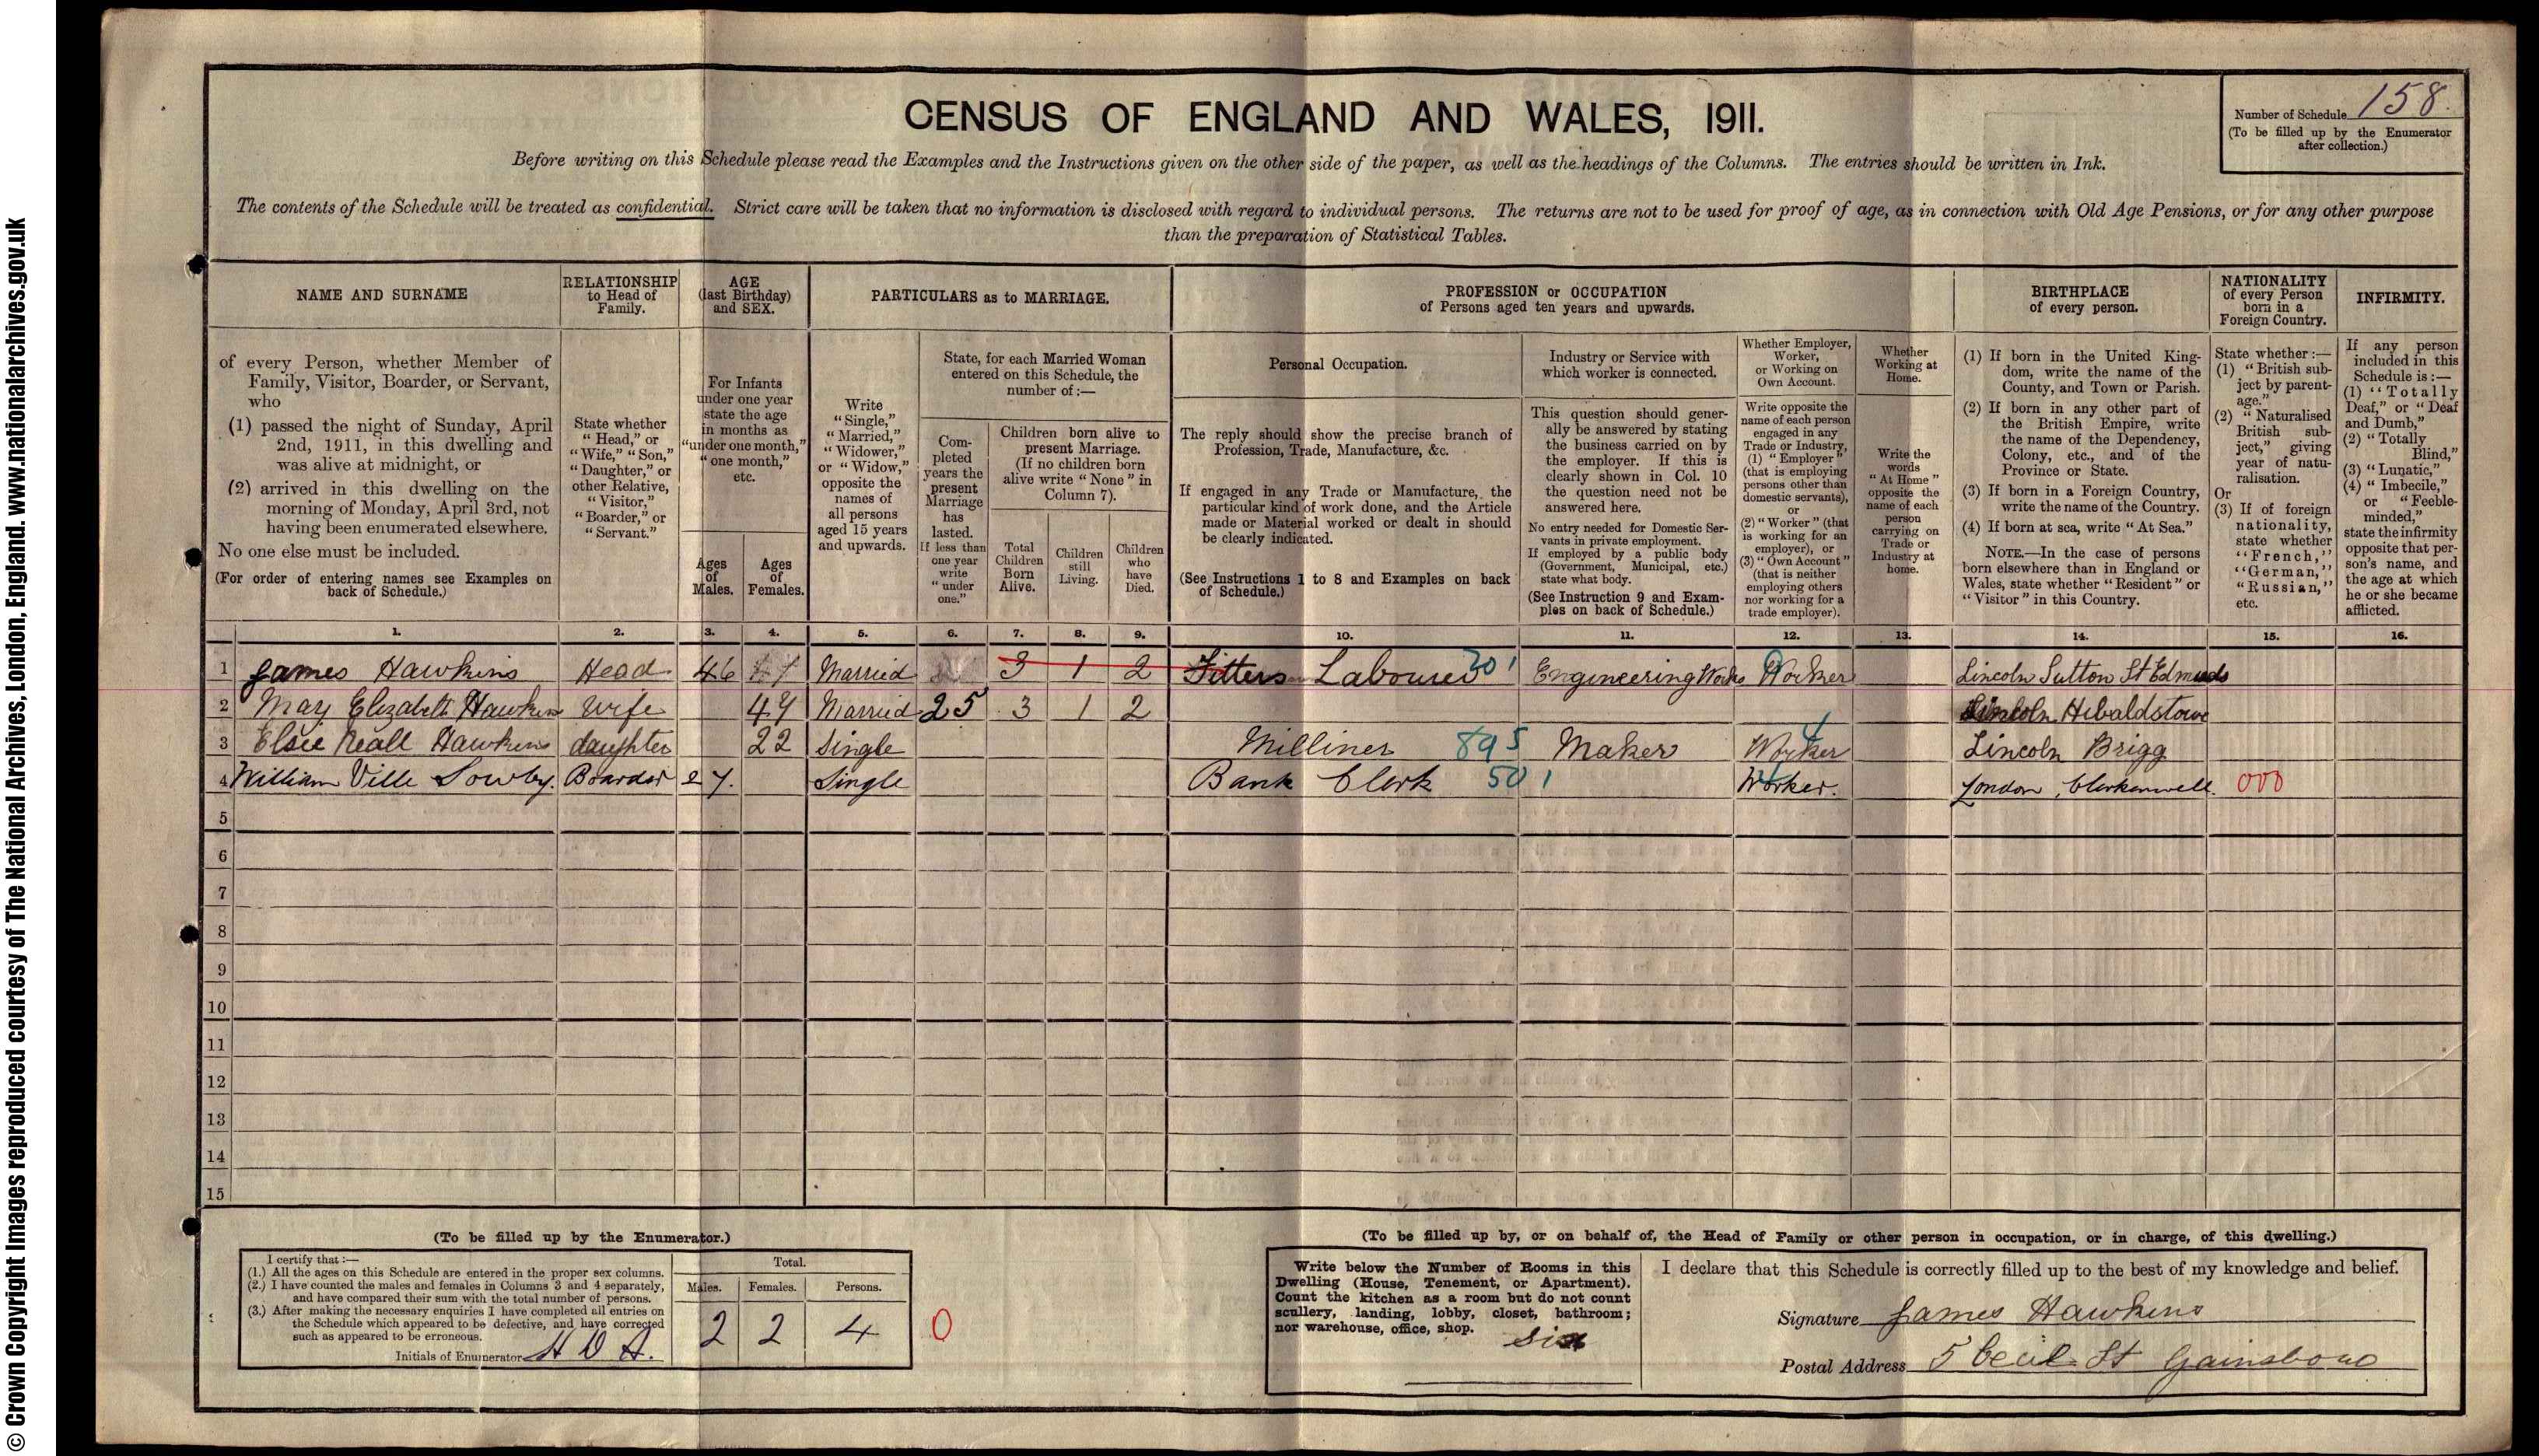 © Crown Copyright Images reproduced courtesy of The National Archives, London, England. www.nationalarchives.gov.uk
CENSUS OF ENGLAND AND WALES, 1911.
Number of Schedule 158.
(To be filled up by the Enumerator
after collection.)
Before writing on this Schedule please read the Examples and the Instructions given on the other side of the paper, as well as the headings of the Columns. The entries should be written in Ink.
The contents of the Schedule will be treated as confidential. Strict care will be taken that no information is disclosed with regard to individual persons. The returns are not to be used for proof of age, as in connection with Old Age Pensions, or for any other purpose
than the preparation of Statistical Tables.
NAME AND SURNAME
of every Person, whether Member of
Family, Visitor, Boarder, or Servant,
who
(1) passed the night of Sunday, April
2nd, 1911, in this dwelling and
was alive at midnight, or
(2) arrived in this dwelling on the
morning of Monday, April 3rd, not
having been enumerated elsewhere.
No one else must be included.
(For order of entering names see Examples on
back of Schedule.)
RELATIONSHIP
to Head of
Family.
State whether
"Head," or
"Wife," "Son,"
"Daughter," or
other Relative,
"Visitor,"
"Boarder," or
"Servant."
AGE
(last Birthday)
and SEX.
For Infants
under one year
state the age
in months as
"under one month,"
"one month,"
etc.
Ages
of
Males.
Ages
of
Females.
PARTICULARS as to MARRIAGE.
Write
"Single,"
"Married,"
"Widower,"
or "Widow,"
opposite the
names of
all persons
aged 15 years
and upwards.
State, for each Married Woman
entered on this Schedule, the
number of:—
Com-
pleted
years the
present
Marriage
has
lasted.
If less than
one year
write
"under
one."
Children born alive to
present Marriage.
(If no children born
alive write "None" in
Column 7).
Total
Children
Born
Alive.
Children
still
Living.
Children
who
have
Died.
PROFESSION or OCCUPATION
of Persons aged ten years and upwards.
Personal Occupation.
The reply should show the precise branch of
Profession, Trade, Manufacture, &c.
If engaged in any Trade or Manufacture, the
particular kind of work done, and the Article
made or Material worked or dealt in should
be clearly indicated.
(See Instructions 1 to 8 and Examples on back
of Schedule.)
Industry or Service with
which worker is connected.
This question should gener-
ally be answered by stating
the business carried on by
the employer. If this is
clearly shown in Col. 10
the question need not be
answered here.
No entry needed for Domestic Ser-
vants in private employment.
If employed by a public body
(Government, Municipal, etc.)
state what body.
(See Instruction 9 and Exam-
ples on back of Schedule.)
Whether Employer,
Worker,
or Working on
Own Account.
Write opposite the
name of each person
engaged in any
Trade or Industry,
(1) "Employer"
(that is employing
persons other than
domestic servants),
or
(2) "Worker" (that
is working for an
employer), or
(3) "Own Account"
(that is neither
employing others
nor working for a
trade employer).
Whether
Working at
Home.
Write the
words
"At Home"
opposite the
name of each
person
carrying on
Trade or
Industry at
home.
BIRTHPLACE
of every person.
(1) If born in the United King-
dom, write the name of the
County, and Town or Parish.
(2) If born in any other part of
the British Empire, write
the name of the Dependency,
Colony, etc., and of the
Province or State.
(3) If born in a Foreign Country,
write the name of the Country.
(4) If born at sea, write "At Sea."
NOTE.—In the case of persons
born elsewhere than in England or
Wales, state whether "Resident" or
"Visitor" in this Country.
NATIONALITY
of every Person
born in a
Foreign Country.
State whether:—
(1) "British sub-
ject by parent-
age."
(2) "Naturalised
British sub-
ject," giving
year of natu-
ralisation.
Or
(3) If of foreign
nationality,
state whether
"French,"
"German,"
"Russian,"
etc.
INFIRMITY.
If any person
included in this
Schedule is:—
(1) "Totally
Deaf," or "Deaf
and Dumb,"
(2) "Totally
Blind,"
(3) "Lunatic,"
(4) "Imbecile,"
or "Feeble-
minded,"
state the infirmity
opposite that per-
son's name, and
the age at which
he or she became
afflicted.
1. 2. 3. 4. 5. 6. 7. 8. 9. 10. 11. 12. 13. 14. 15. 16.
1 James Hawkins Head 46 Married 3 1 2 Fitters Labourer 301 Engineering Works Worker Lincoln Sutton St Edmunds
2 Mary Elizabeth Hawkins Wife 47 Married 25 3 1 2 Lincoln Hibaldstowe
3 Elsie Neall Hawkins daughter 22 Single Milliner 895 Maker Worker Lincoln Brigg
4 William Ville Sowby. Boarder 27. Single Bank Clerk 501 Worker. London, Clerkenwell. 000
5
6
7
8
9
10
11
12
13
14
15
(To be filled up by the Enumerator.)
I certify that:—
(1.) All the ages on this Schedule are entered in the proper sex columns.
(2.) I have counted the males and females in Columns 3 and 4 separately,
and have compared their sum with the total number of persons.
(3.) After making the necessary enquiries I have completed all entries on
the Schedule which appeared to be defective, and have corrected
such as appeared to be erroneous.
Initials of Enumerator
Total.
Males. Females. Persons.
2 2 4 0
(To be filled up by, or on behalf of, the Head of Family or other person in occupation, or in charge, of this dwelling.)
Write below the Number of Rooms in this
Dwelling (House, Tenement, or Apartment).
Count the kitchen as a room but do not count
scullery, landing, lobby, closet, bathroom;
nor warehouse, office, shop.
six
I declare that this Schedule is correctly filled up to the best of my knowledge and belief.
Signature James Hawkins
Postal Address 5 Cecil St Gainsboro